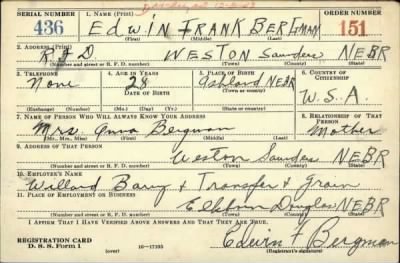 SERIAL NUMBER 1. NAME (Print) ORDER NUMBER
436 EDWIN FRANK BERGMAN 151
(First) (Middle) (Last)
2. ADDRESS (Print)
RFD WESTON Saunders NEBR
(Number and street or R. F. D. number) (Town) (County) (State)
3. TELEPHONE 4. AGE IN YEARS 5. PLACE OF BIRTH 6. COUNTRY OF CITIZENSHIP
None 28 Ashland NEBR U.S.A.
DATE OF BIRTH
(Exchange) (Number) (Mo.) (Day) (Yr.) (State or country)
7. NAME OF PERSON WHO WILL ALWAYS KNOW YOUR ADDRESS 8. RELATIONSHIP OF THAT PERSON
Mrs. Anna Bergman Mother
(Mr., Mrs., Miss) (First) (Middle) (Last)
9. ADDRESS OF THAT PERSON
Weston Saunders NEBR
(Number and street or R. F. D. number) (Town) (County) (State)
10. EMPLOYER'S NAME
Willard Barry + Transfer + Grain
11. PLACE OF EMPLOYMENT OR BUSINESS
Elkhorn Douglas NEBR
(Number and street or R. F. D. number) (Town) (County) (State)
I AFFIRM THAT I HAVE VERIFIED ABOVE ANSWERS AND THAT THEY ARE TRUE.
REGISTRATION CARD Edwin F Bergman
D. S. S. Form 1 (over) 16-17105 (Registrant's signature)